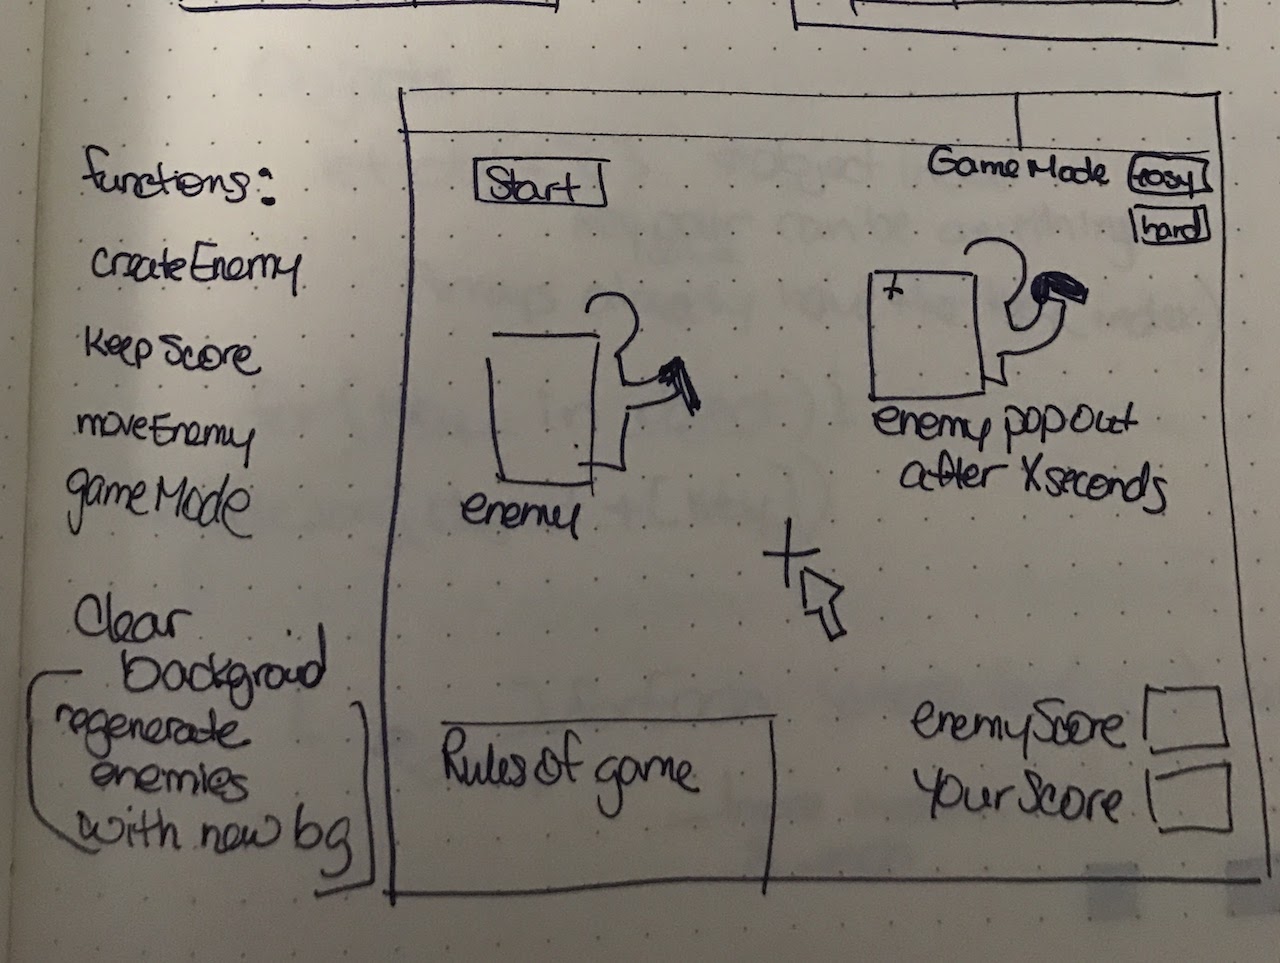 functions:
createEnemy
keepScore
moveEnemy
gameMode
Clear
backgroud
regenerate
enemies
with new bg
Start
GameMode easy
hard
enemy
enemy pop out
after X seconds
Rules of game
enemyScore
YourScore